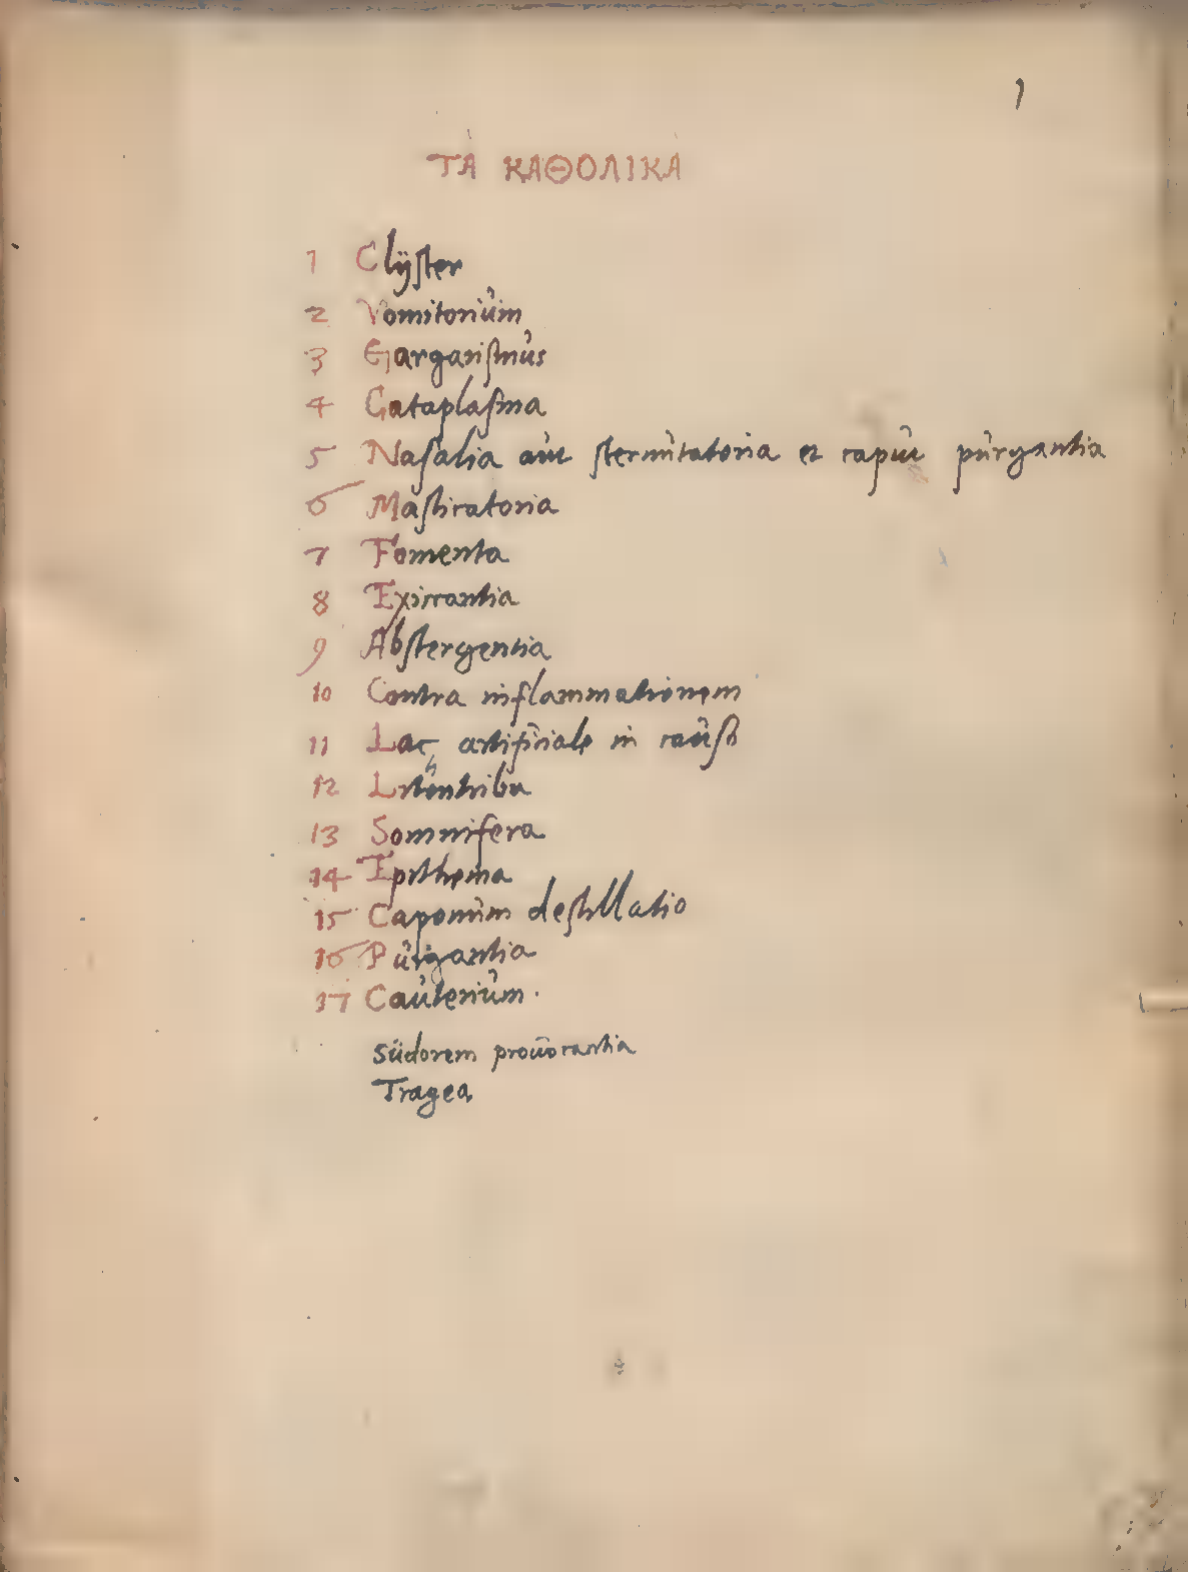 1
ΤΑ ΚΑΘΟΛΙΚΑ
1 Clÿster
2 Vomitoriům
3 Gargarismůs
4 Cataplasma
5 Nasalia aůt sternůtatoria et capůt půrgantia
6 Masticatoria
7 Fomenta
8 Exiccantia
9 Abstergentia
10 Contra inflammationem
11 Lac artificiale in
12
13 Somnifera
14 Epithema
15 Caponům destillatio
16 Půrgantia
17 Caůteriům.
Südorem provocantia
Tragea